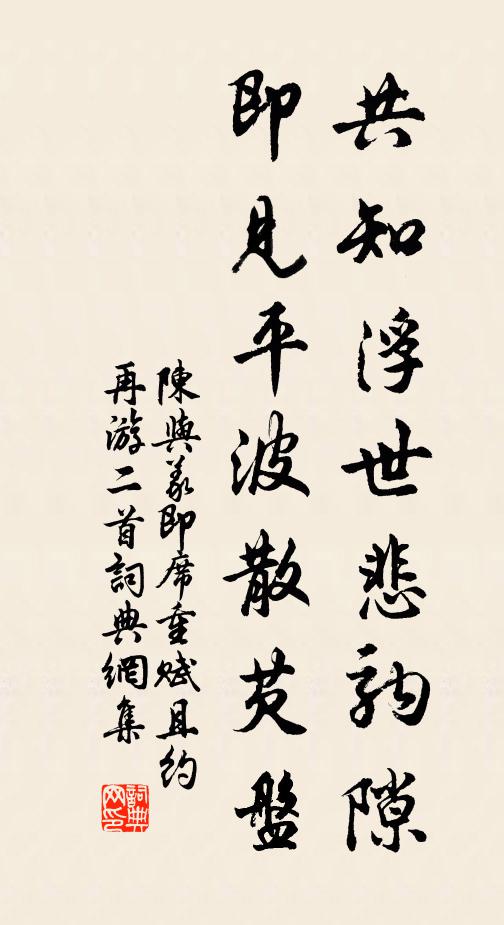 共知浮世悲駒隙
即見平波散芡盤
陳與義即席重賦且約
再游二首詞典網集
詞典
网印